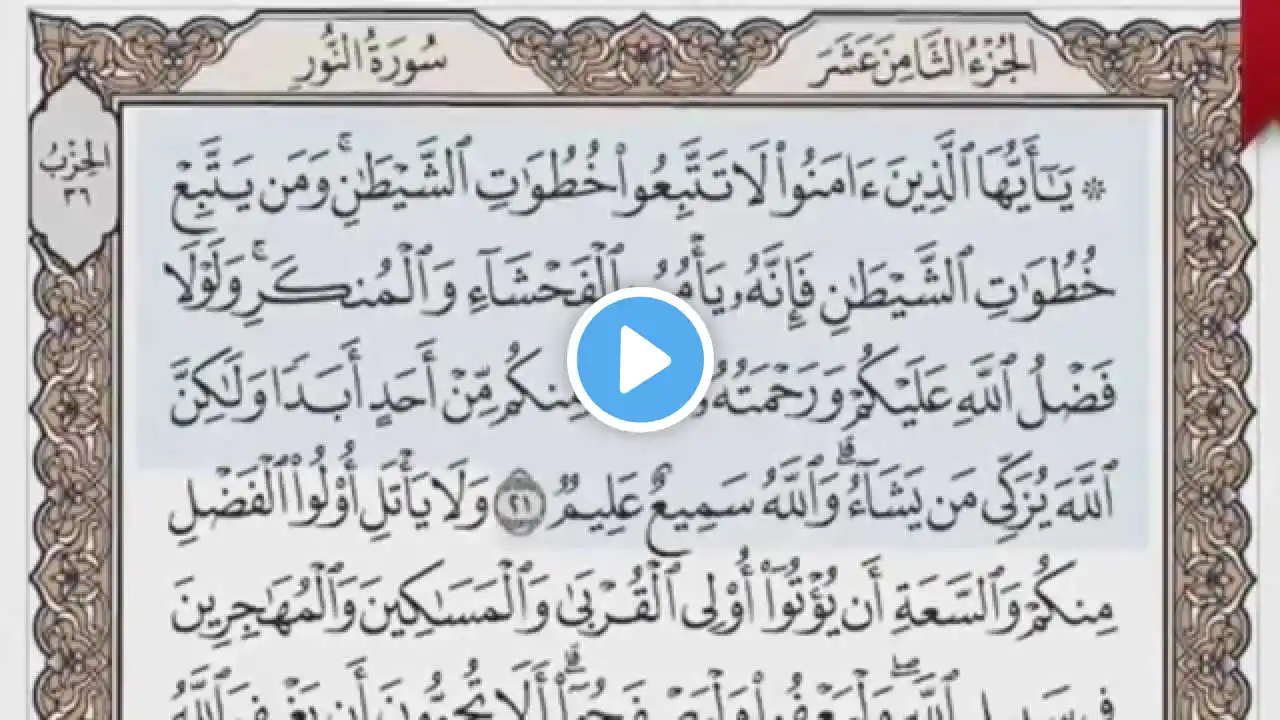 الجُزْءُ الثَّامِنَ عَشَرَ
سُورَةُ النُّورِ
الحِزْبُ
٣٦
۞ يَـٰٓأَيُّهَا ٱلَّذِينَ ءَامَنُوا۟ لَا تَتَّبِعُوا۟ خُطُوَٰتِ ٱلشَّيْطَـٰنِۚ وَمَن يَتَّبِعْ
خُطُوَٰتِ ٱلشَّيْطَـٰنِ فَإِنَّهُۥ ٱلْفَحْشَآءِ وَٱلْمُنكَرِۚ وَلَوْلَا
فَضْلُ ٱللَّهِ عَلَيْكُمْ وَرَحْمَتُهُۥ مِنكُم مِّنْ أَحَدٍ أَبَدًا وَلَـٰكِنَّ
ٱللَّهَ يُزَكِّى مَن يَشَآءُۗ وَٱللَّهُ سَمِيعٌ عَلِيمٌ ٢١ وَلَا يَأْتَلِ أُو۟لُوا۟ ٱلْفَضْلِ
مِنكُمْ وَٱلسَّعَةِ أَن يُؤْتُوٓا۟ أُو۟لِى ٱلْقُرْبَىٰ وَٱلْمَسَـٰكِينَ وَٱلْمُهَـٰجِرِينَ